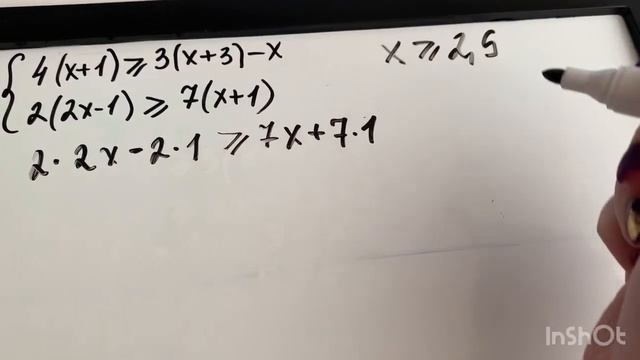 { 4(x+1) ⩾ 3(x+3)-x
x ⩾ 2,5
2(2x-1) ⩾ 7(x+1)
2·2x-2·1 ⩾ 7x+7·1
InShOt